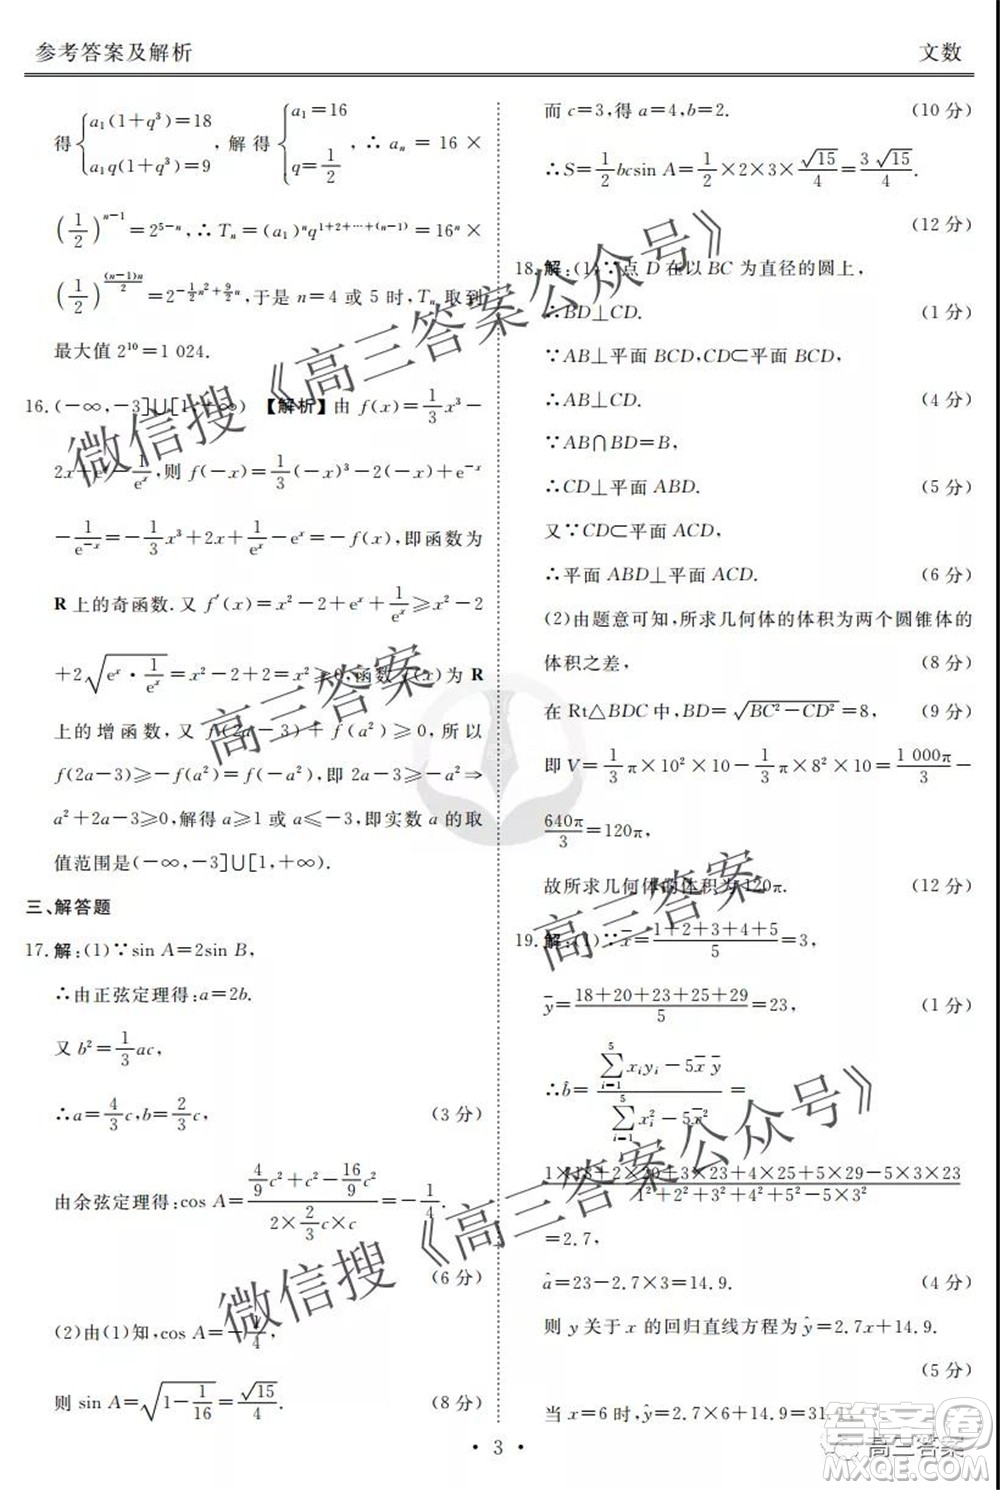 参考答案及解析
文数
得{a₁(1+q³)=18, a₁q(1+q³)=9, 解得{a₁=16, q=1/2, ∴aₙ=16×
(1/2)ⁿ⁻¹=2⁵⁻ⁿ, ∴Tₙ=(a₁)ⁿq^(1+2+⋯+(n−1))=16ⁿ×
(1/2)^((n−1)n/2)=2^(−½n²+(9/2)n), 于是 n=4 或 5 时, Tₙ 取到
最大值 2¹⁰=1 024.
16. (−∞,−3]∪[1,+∞) 【解析】由 f(x)=1/3x³−
2x+eˣ−1/eˣ, 则 f(−x)=1/3(−x)³−2(−x)+e⁻ˣ
−1/e⁻ˣ=−1/3x³+2x+1/eˣ−eˣ=−f(x), 即函数为
R 上的奇函数. 又 f′(x)=x²−2+eˣ+1/eˣ≥x²−2
+2√(eˣ·1/eˣ)=x²−2+2=x²≥0, 函数 f(x) 为 R
上的增函数. 又 f(2a−3)+f(a²)≥0, 所以
f(2a−3)≥−f(a²)=f(−a²), 即 2a−3≥−a²⇒
a²+2a−3≥0, 解得 a≥1 或 a≤−3, 即实数 a 的取
值范围是(−∞,−3]∪[1,+∞).
三、解答题
17. 解:(1)∵sin A=2sin B,
∴由正弦定理得:a=2b.
又 b²=1/3ac,
∴a=4/3c, b=2/3c, (3 分)
由余弦定理得:cos A=(4/9c²+c²−16/9c²)/(2×2/3c×c)=−1/4.
(6 分)
(2)由(1)知, cos A=−1/4
则 sin A=√(1−1/16)=√15/4. (8 分)
而 c=3, 得 a=4, b=2. (10 分)
∴S=1/2bcsin A=1/2×2×3×√15/4=3√15/4.
(12 分)
18. 解:(1)∵点 D 在以 BC 为直径的圆上,
∴BD⊥CD. (1 分)
∵AB⊥平面 BCD, CD⊂平面 BCD,
∴AB⊥CD. (4 分)
∵AB∩BD=B,
∴CD⊥平面 ABD. (5 分)
又∵CD⊂平面 ACD,
∴平面 ABD⊥平面 ACD. (6 分)
(2)由题意可知, 所求几何体的体积为两个圆锥体的
体积之差, (8 分)
在 Rt△BDC 中, BD=√(BC²−CD²)=8, (9 分)
即 V=1/3π×10²×10−1/3π×8²×10=1 000π/3−
640π/3=120π,
故所求几何体的体积为120π. (12 分)
19. 解:(1)∵x̄=(1+2+3+4+5)/5=3,
ȳ=(18+20+23+25+29)/5=23, (1 分)
∴b̂=(∑ᵢ₌₁⁵xᵢyᵢ−5x̄ ȳ)/(∑ᵢ₌₁⁵xᵢ²−5x̄²)=
(1×18+2×20+3×23+4×25+5×29−5×3×23)/(1²+2²+3²+4²+5²−5×3²)
=2.7,
â=23−2.7×3=14.9. (4 分)
则 y 关于 x 的回归直线方程为ŷ=2.7x+14.9.
(5 分)
当 x=6 时, ŷ=2.7×6+14.9=31.1,
· 3 ·
微信搜《高三答案公众号》
高三答案
高三答案
微信搜《高三答案公众号》
答案圈
高三答案
MXQE.COM